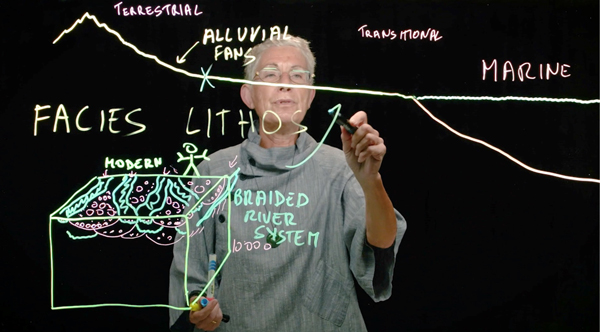 TERRESTRIAL
TRANSITIONAL
ALLUVIAL
FANS
MARINE
FACIES LITHOS
MODERN
BRAIDED
RIVER
SYSTEM